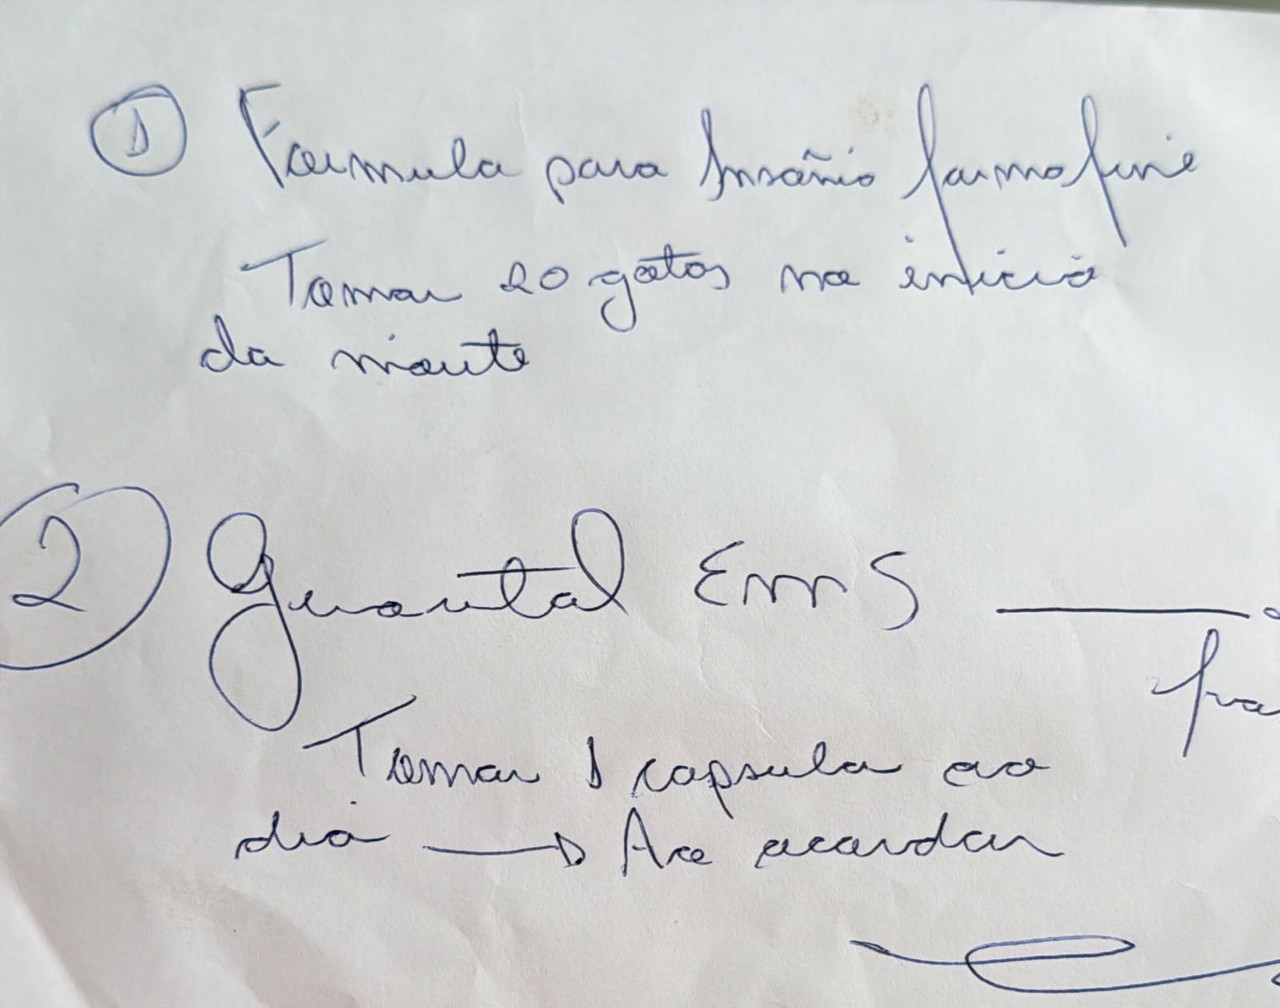 ① Formula para Insônio farmafine
Tomar 20 gotas no início
da noite
② Guarital EmS —
fra
Tomar 1 capsula ao
dia → Ao acordar